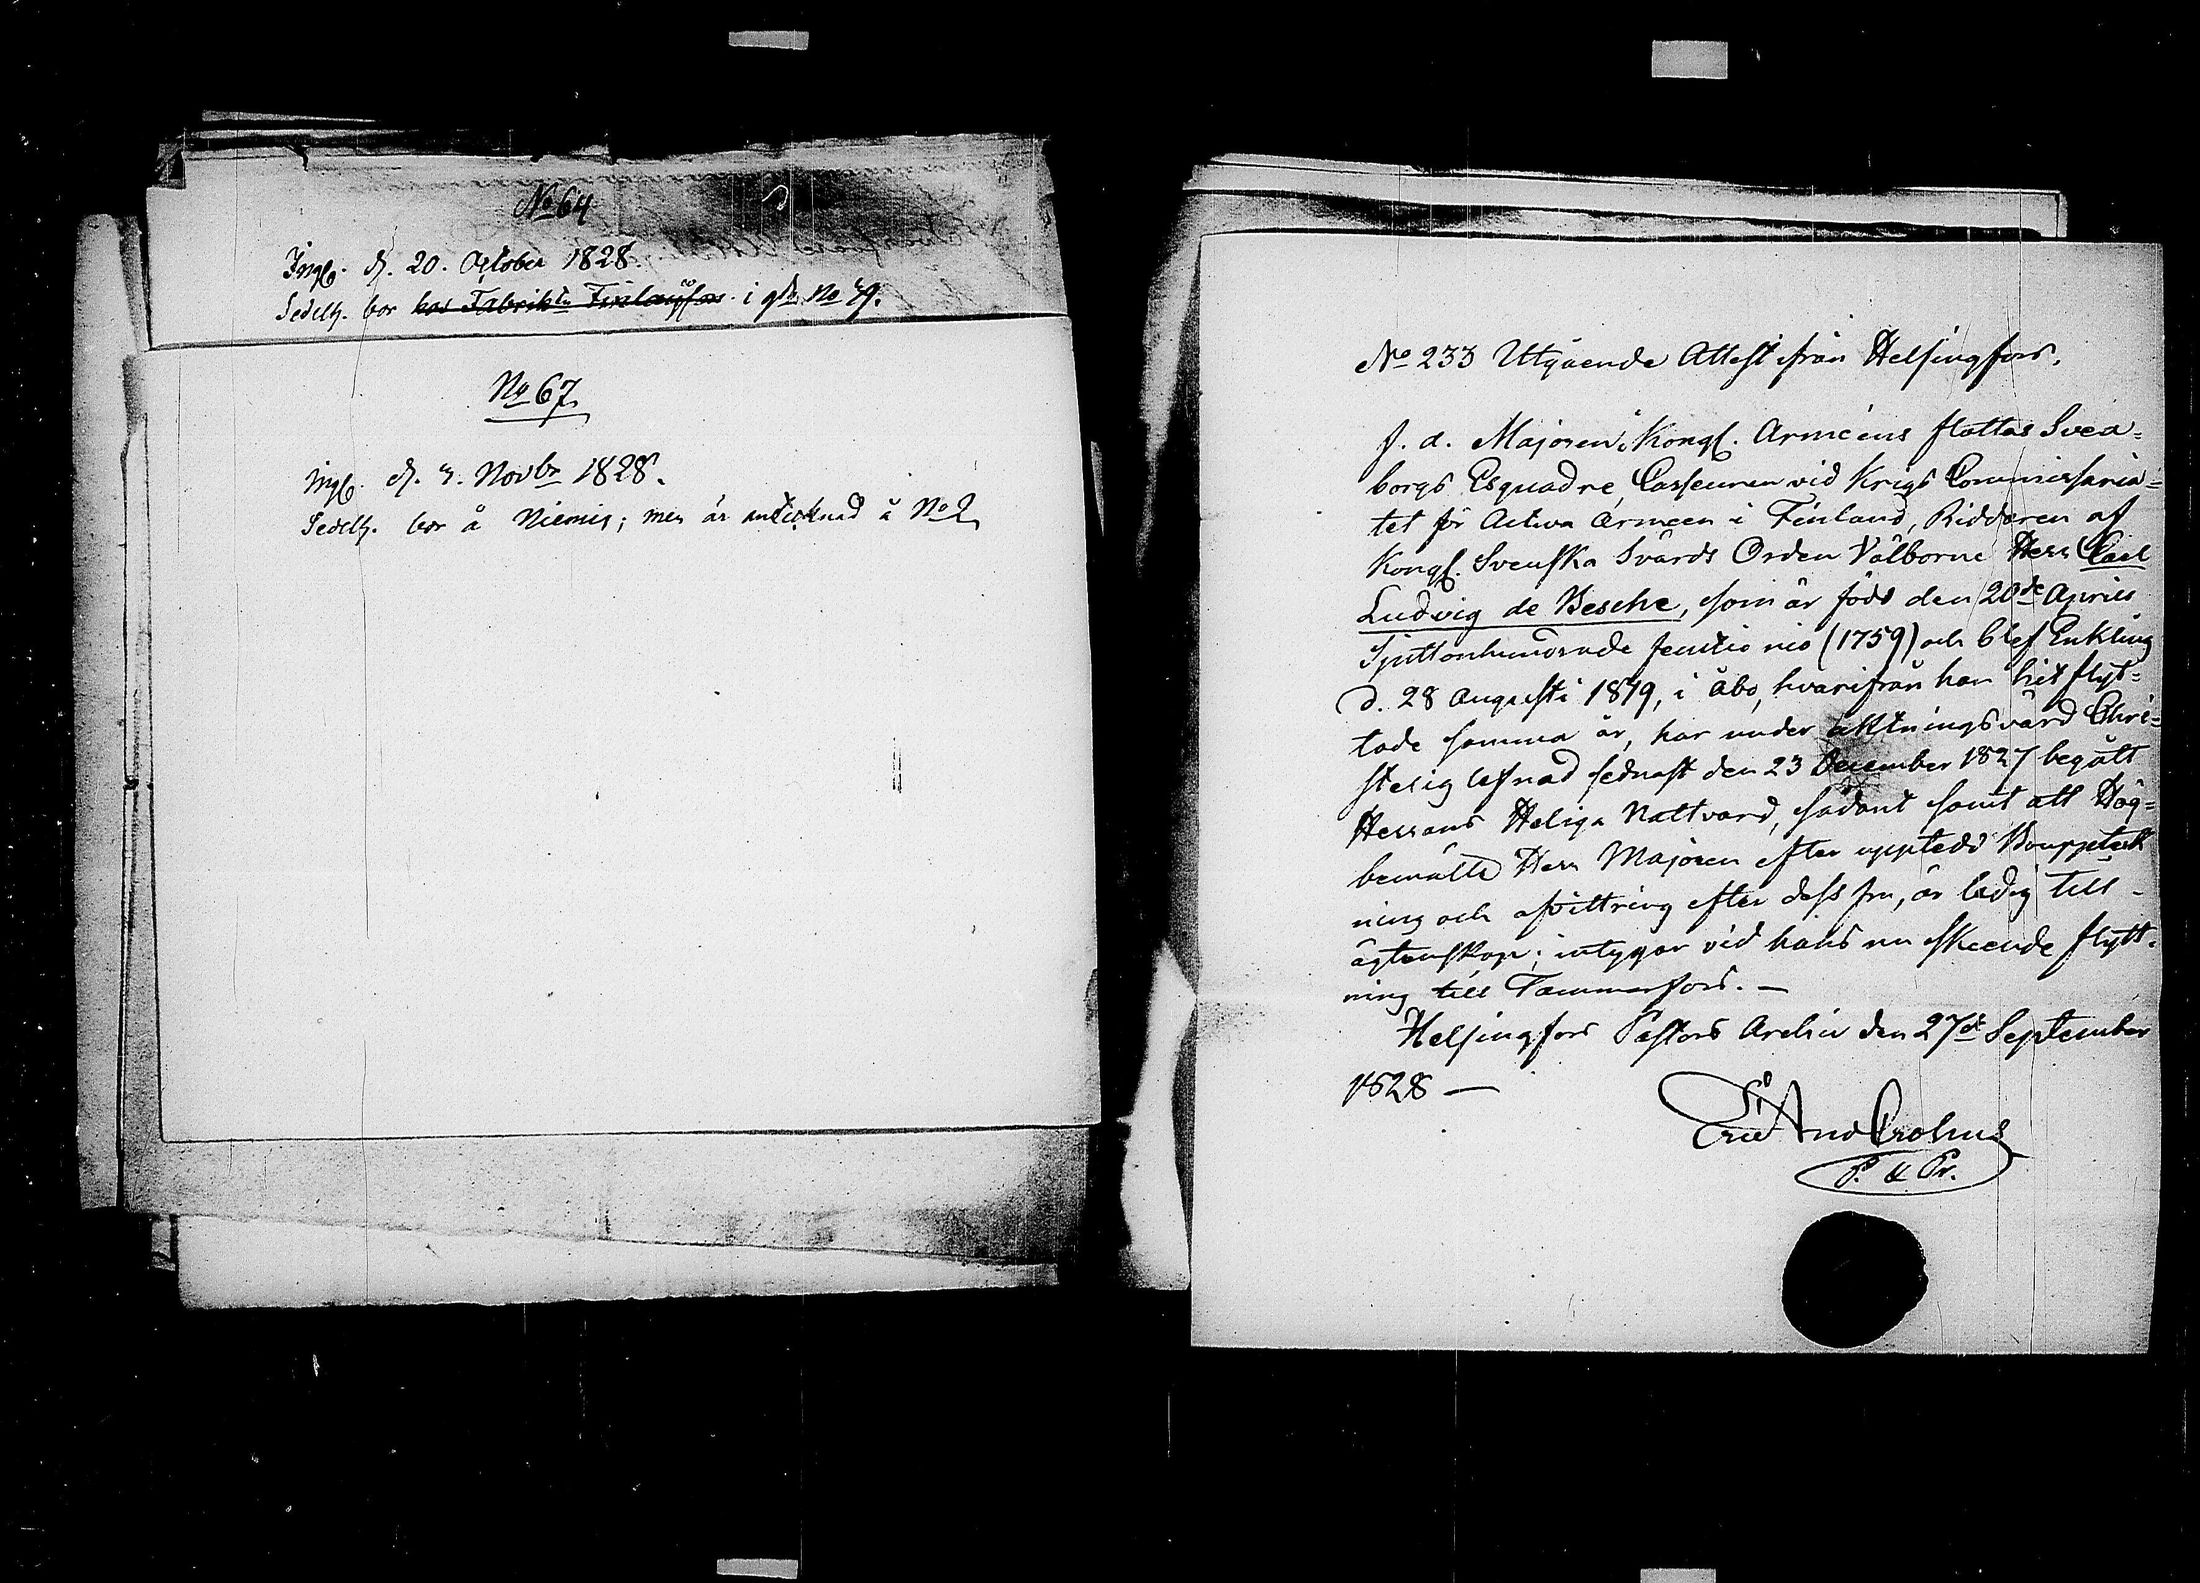 No 64
Ingb. d. 20. October 1828.
Sedelh. bor hos Fabrikn Finlayson i gdn No 49.
No 67
Ingb. d. 3. Novbr 1828.
Sedelh. bor å Niemis; men är antecknad å No 2
No 233 Utgående Attest ifrån Helsingfors.
f. d. Majoren i Kongl. Arméens flottas Svea=
borgs Esquadre, Casseuren vid Krigs Commissaria=
tet för Activa Armeen i Finland, Riddaren af
Kongl. Svenska Svärds Orden Välborne Herr Carl
Ludvig de Besche, som är född den 20de Aprill
Sjuttonhundrade femtio nio (1759) och blef Enkling
d. 28 Augusti 1819, i Åbo, hvarifrån han hit flyt=
tade samma år, har under aktningsvärd Chri=
stelig lefnad sednast den 23 December 1827 begått
Herrans Heliga Nattvard, sådant samt att Hög=
bemälte Herr Majoren efter upptedd Bouppteck
ning och afvittring efter dess fru, är ledig till
ägtenskap; intygar vid hans nu skeende flytt=
ning till Tammerfors. —
Helsingfors Pastors Archiv den 27de September
1828 —
Eric And Crohns
P. & Pr.